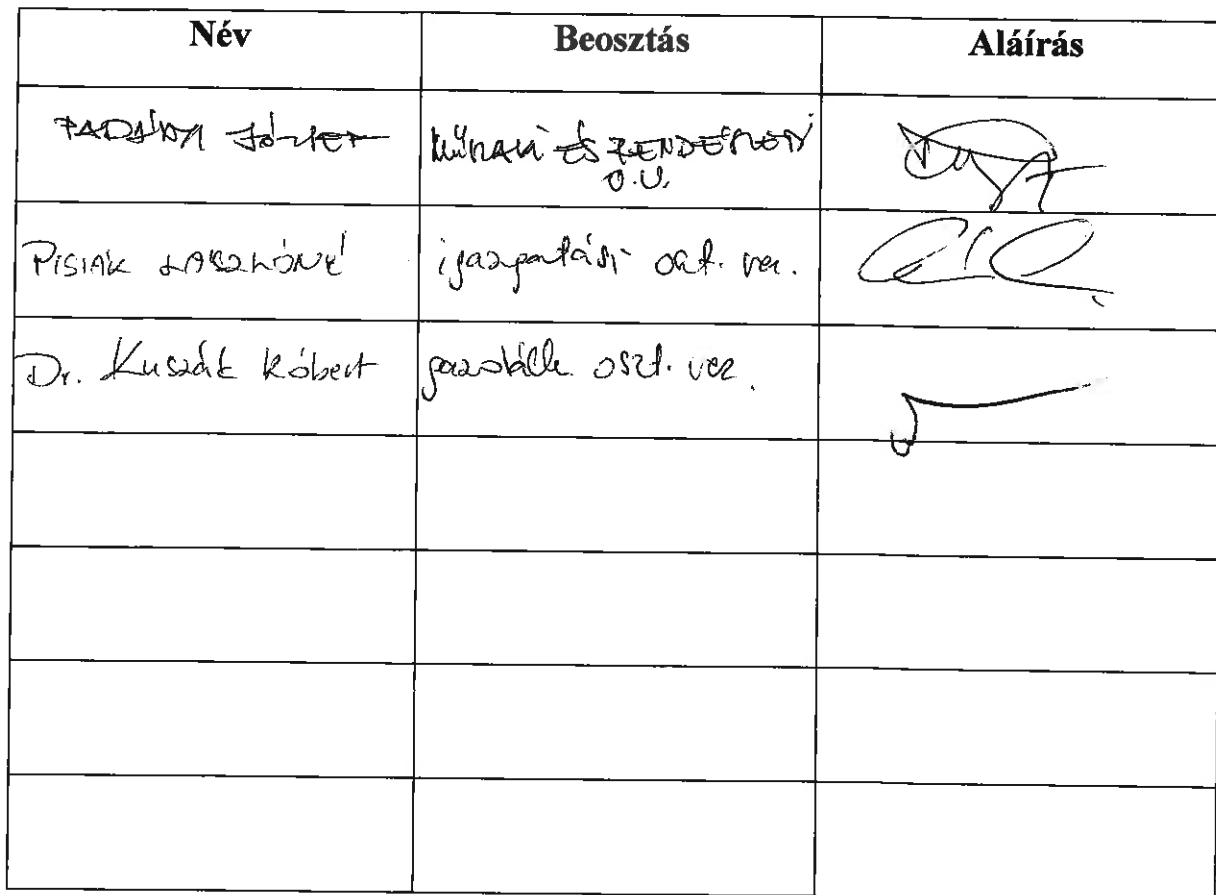 Név Beosztás Aláírás
PADÁNYI JÓZSEF MŰSZAKI ÉS RENDÉSZETI
O.V.
PISIÁK LÁSZLÓNÉ igazgatási oszt. ver.
Dr. Kuszák Róbert oszt. vez.